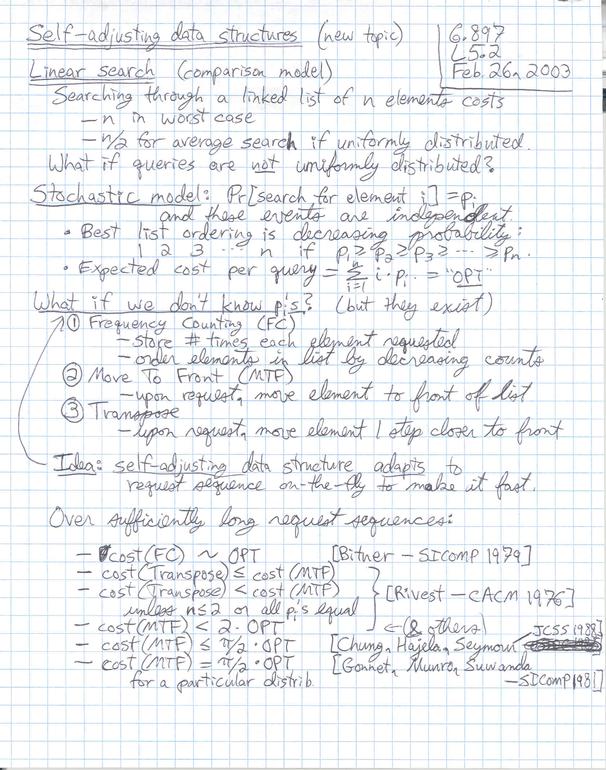 Self-adjusting data structures (new topic)
6.897
L5.2
Feb. 26, 2003
Linear search (comparison model)
Searching through a linked list of n elements costs
— n in worst case
— n/2 for average search if uniformly distributed.
What if queries are not uniformly distributed?
Stochastic model: Pr[search for element i] = pᵢ
and these events are independent.
• Best list ordering is decreasing probability:
1 2 3 ... n if p₁ ≥ p₂ ≥ p₃ ≥ ... ≥ pₙ.
• Expected cost per query = Σᵢ₌₁ⁿ i · pᵢ = "OPT"
What if we don't know pᵢ's? (but they exist)
① Frequency Counting (FC)
— store # times each element requested
— order elements in list by decreasing counts
② Move To Front (MTF)
— upon request, move element to front of list
③ Transpose
— upon request, move element 1 step closer to front
Idea: self-adjusting data structure adapts to
request sequence on-the-fly to make it fast.
Over sufficiently long request sequences:
— cost(FC) ~ OPT [Bitner — SICOMP 1979]
— cost(Transpose) ≤ cost(MTF)
— cost(Transpose) < cost(MTF) [Rivest — CACM 1976]
unless n≤2 or all pᵢ's equal
— cost(MTF) < 2 · OPT ← (& others)
— cost(MTF) ≤ π/2 · OPT [Chung, Hajela, Seymour JCSS 1988]
— cost(MTF) = π/2 · OPT [Gonnet, Munro, Suwanda
for a particular distrib. — SICOMP 1981]